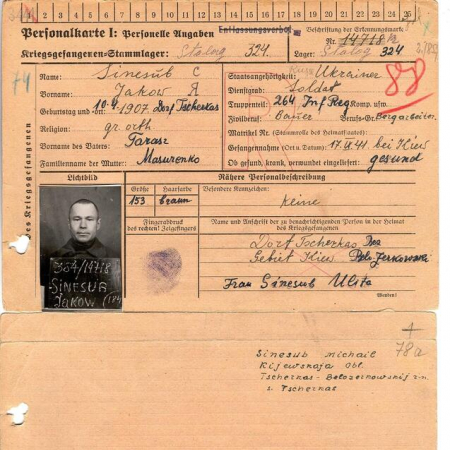 1 2 3 4 5 6 7 8 9 10 11 12 13 14 15 16 17 18 19 20 21 22 23 24 25
Personalkarte I: Personelle Angaben
Entlassungsverbot
Beschriftung der Erkennungsmarke
Nr. 14718
Kriegsgefangenen-Stammlager: Stalag 324
Lager: Stalag 324
74
88
Name: Sinesub C
Vorname: Jakow Я
Geburtstag und -ort: 10.4.1907. Dorf Tscherkas
Religion: gr. orth
Vorname des Vaters: Taras
Familienname der Mutter: Masurenko
Staatsangehörigkeit: Ukrainer
Dienstgrad: Soldat
Truppenteil: 264 Inf Reg Komp. usw.
Zivilberuf: Bauer Berufs-Gr. Bergarbeiter
Matrikel Nr. (Stammrolle des Heimatstaates)
Gefangennahme (Ort u. Datum): 17.IX 41 bei Kiew
Ob gesund, krank, verwundet eingeliefert: gesund
des Kriegsgefangenen
Lichtbild
Nähere Personalbeschreibung
Größe
Haarfarbe
Besondere Kennzeichen:
153
braun
keine
Fingerabdruck
des rechten! Zeigefingers
Name und Anschrift der zu benachrichtigenden Person in der Heimat
des Kriegsgefangenen
Dorf Tscherkas
Gebiet Kiew
Frau Sinesub Ulita
Wenden!
324/14718
SINESUB
JAKOW
78a
Sinesub Michail
Kijewskaja Obl.
Tscherkas-Belozerkowskij r-n
s. Tscherkas